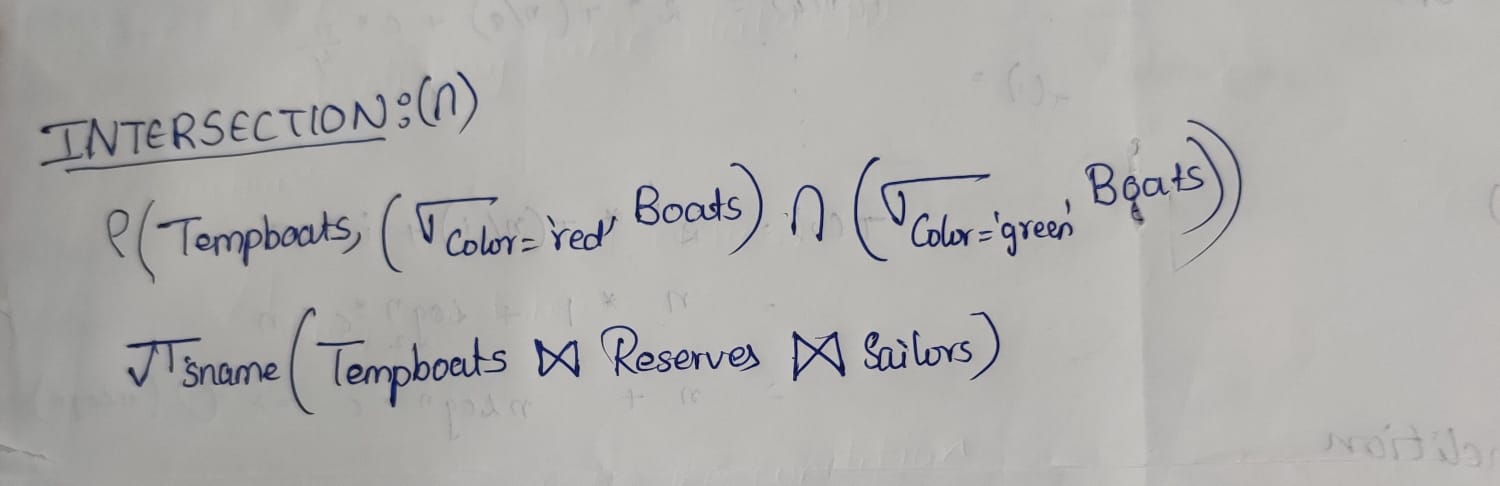 INTERSECTION:(∩)
ρ(Tempboats, (σ Color='red' Boats) ∩ (σ Color='green' Boats))
π sname (Tempboats ⋈ Reserves ⋈ Sailors)